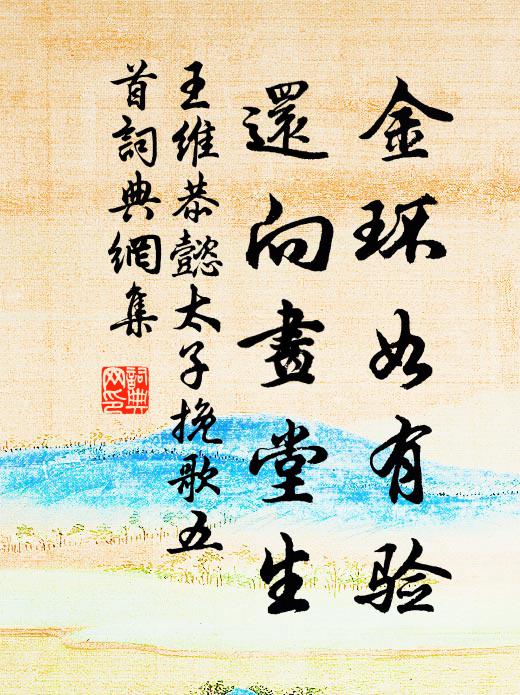 金环如有验
還向畫堂生
王維恭懿太子挽歌五
首詞典網集
詞典
网印